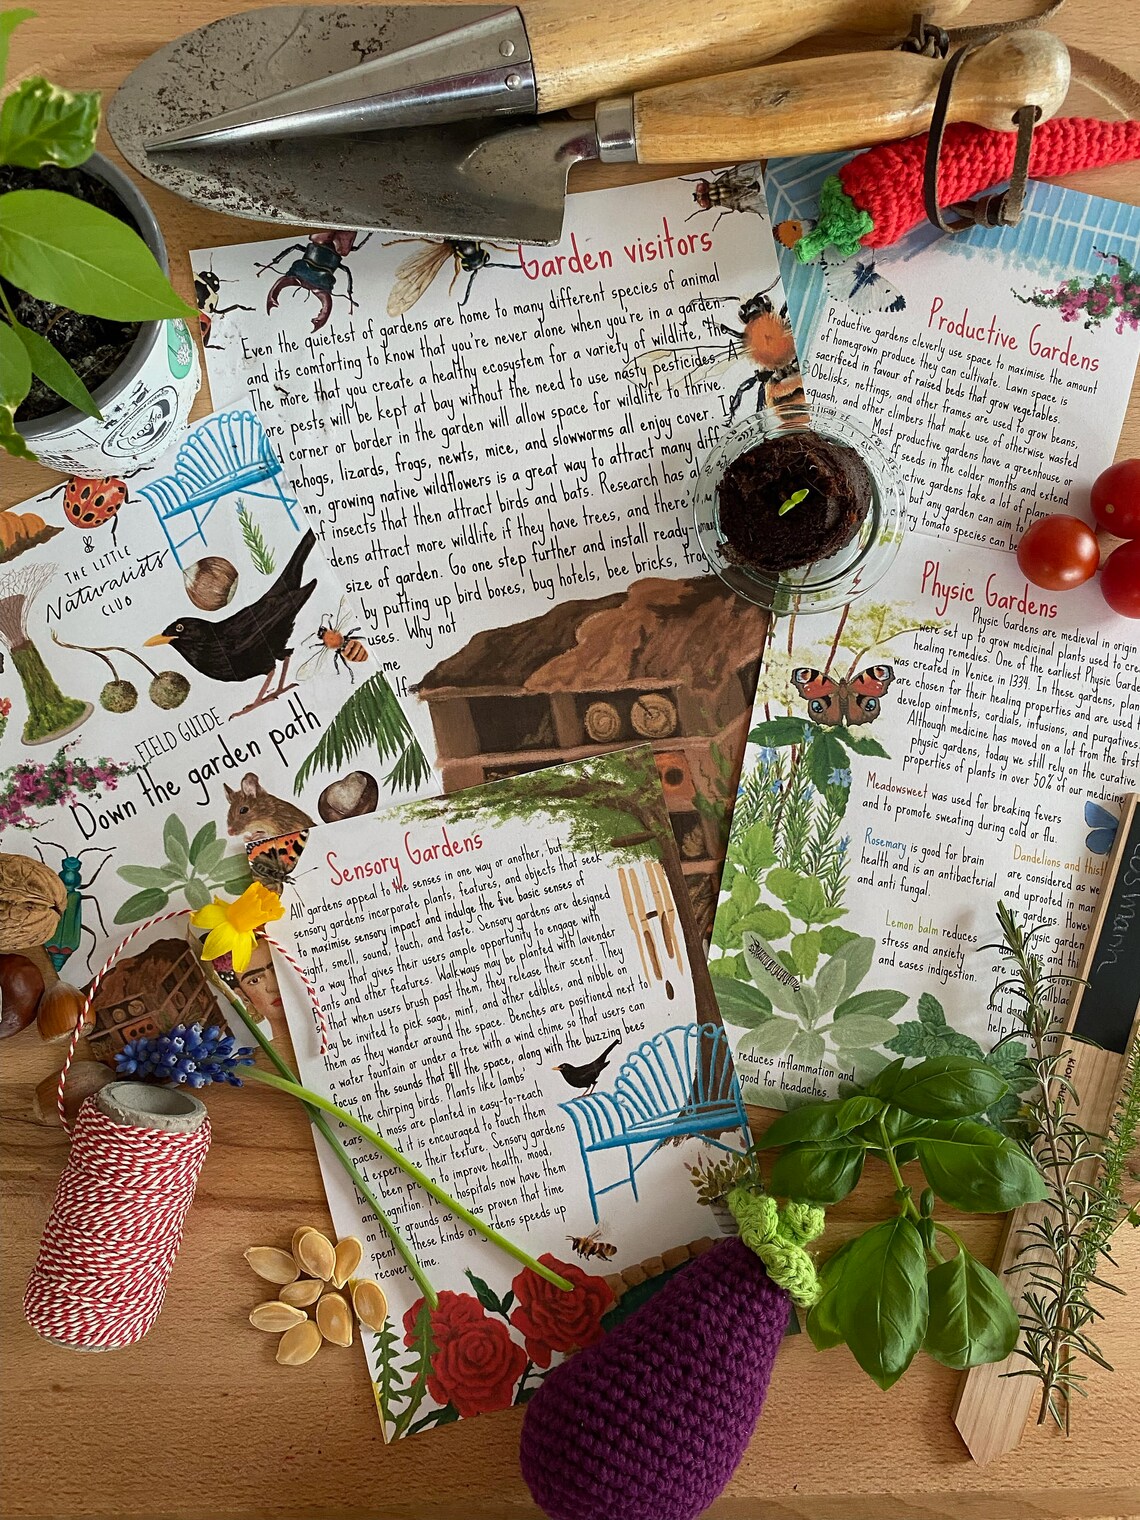 Garden visitors
Even the quietest of gardens are home to many different species of animal
and its comforting to know that you're never alone when you're in a garden.
The more that you create a healthy ecosystem for a variety of wildlife, the
ore pests will be kept at bay without the need to use nasty pesticides. A
corner or border in the garden will allow space for wildlife to thrive.
gehogs, lizards, frogs, newts, mice, and slowworms all enjoy cover. I
an, growing native wildflowers is a great way to attract many diff
f insects that then attract birds and bats. Research has al
dens attract more wildlife if they have trees, and there'
size of garden. Go one step further and install ready-
by putting up bird boxes, bug hotels, bee bricks, frog
uses. Why not
me
lf
Productive Gardens
Productive gardens cleverly use space to maximise the amount
of homegrown produce they can cultivate. Lawn space is
sacrificed in favour of raised beds that grow vegetables.
Obelisks, nettings, and other frames are used to grow beans,
squash, and other climbers that make use of otherwise wasted
Most productive gardens have a greenhouse or
f seeds in the colder months and extend
ctive gardens take a lot of plannin
but any garden can aim to
rry tomato species can be
THE LITTLE
Naturalists
CLUB
FIELD GUIDE
Down the garden path
Physic Gardens
Physic Gardens are medieval in origin
were set up to grow medicinal plants used to cre
healing remedies. One of the earliest Physic Gard
was created in Venice in 1334. In these gardens, plan
are chosen for their healing properties and are used t
develop ointments, cordials, infusions, and purgatives.
Although medicine has moved on a lot from the first
physic gardens, today we still rely on the curative
properties of plants in over 50% of our medicine
Meadowsweet was used for breaking fevers
and to promote sweating during cold or flu.
Rosemary is good for brain
health and is an antibacterial
and anti fungal.
Dandelions and thist
are considered as we
and uprooted in man
gardens. Howev
physic garden
are us
Lemon balm reduces
stress and anxiety
and eases indigestion.
help b
reduces inflammation and
good for headaches.
Sensory Gardens
All gardens appeal to the senses in one way or another, but
sensory gardens incorporate plants, features, and objects that seek
to maximise sensory impact and indulge the five basic senses of
sight, smell, sound, touch, and taste. Sensory gardens are designed
a way that gives their users ample opportunity to engage with
ants and other features. Walkways may be planted with lavender
that when users brush past them, they release their scent. They
may be invited to pick sage, mint, and other edibles, and nibble on
them as they wander around the space. Benches are positioned next to
a water fountain or under a tree with a wind chime so that users can
focus on the sounds that fill the space, along with the buzzing bees
the chirping birds. Plants like lambs'
ears and moss are planted in easy-to-reach
paces, and it is encouraged to touch them
d experience their texture. Sensory gardens
have been proven to improve health, mood,
and cognition. Many hospitals now have them
on their grounds as it was proven that time
spent in these kinds of gardens speeds up
recovery time.